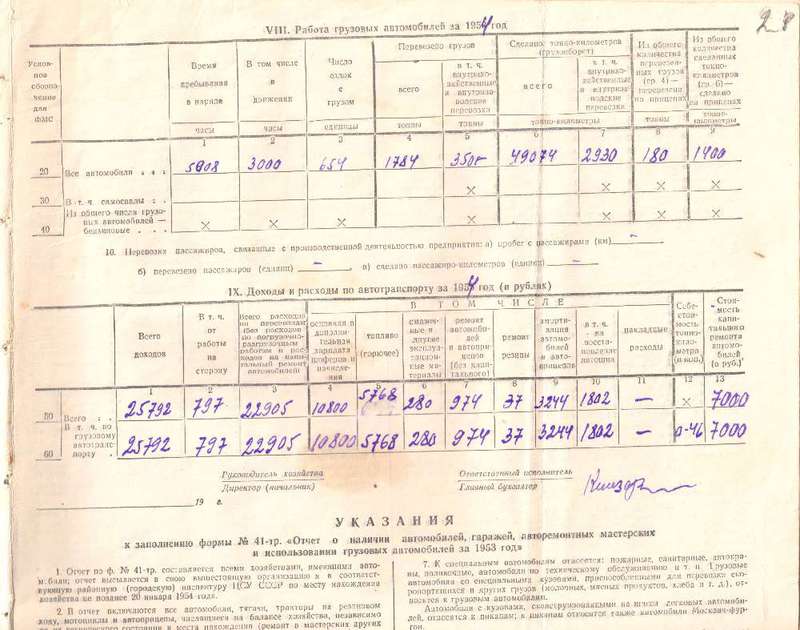 28
VIII. Работа грузовых автомобилей за 1954 год
Условное обозначение для ФМС
Время пребывания в наряде
В том числе в движении
Число ездок с грузом
Перевезено грузов
всего
в т. ч. внутрихозяйственные и внутризаводские перевозки
Сделано тонно-километров (грузооборот)
всего
в т. ч. внутрихозяйственные и внутризаводские перевозки
Из общего количества перевезенных грузов (гр. 4) — перевезено на прицепах
Из общего количества сделанных тонно-километров (гр. 6) — сделано на прицепах
часы часы единицы тонны тонны тонно-километры тонны тонно-километры
1 2 3 4 5 6 7 8 9
20 Все автомобили . . . 5808 3000 654 1784 49074 2930 180 1400
30 В т. ч. самосвалы . . × × ×
40 Из общего числа грузовых автомобилей — бензиновые . . . × × × × × × ×
10. Перевозка пассажиров, связанные с производственной деятельностью предприятия: а) пробег с пассажирами (км) —
б) перевезено пассажиров (единиц) — в) сделано пассажиро-километров (единиц) —
IX. Доходы и расходы по автотранспорту за 1954 год (в рублях)
Всего доходов
В т. ч. от работы на сторону
Всего расходов по перевозкам (без расходов по погрузочно-разгрузочным работам и расходов на капитальный ремонт автомобилей)
В ТОМ ЧИСЛЕ
основная и дополнительная зарплата шоферов и начисления
топливо (горючее)
смазочные и другие эксплуатационные материалы
ремонт автомобилей и автоприцепов (без капитального)
ремонт резины
амортизация автомобилей и автоприцепов
в т. ч. на восстановление автошин
накладные расходы
Себестоимость тонно-километра (в коп.)
Стоимость капитального ремонта автомобилей (в руб.)
1 2 3 4 5 6 7 8 9 10 11 12 13
50 Всего . . 25792 797 22905 10800 5768 280 974 37 3244 1802 — × 7000
60 В т. ч. по грузовому автотранспорту . 25792 797 22905 10800 5768 280 974 37 3244 1802 — 0-46 7000
Руководитель хозяйства
Директор (начальник)
Ответственный исполнитель
Главный бухгалтер
19 г.
УКАЗАНИЯ
к заполнению формы № 41-тр. «Отчет о наличии автомобилей, гаражей, авторемонтных мастерских
и использовании грузовых автомобилей за 1953 год»
1. Отчет по ф. № 41-тр. составляется всеми хозяйствами, имеющими авто-
мобили; отчет высылается в свою вышестоящую организацию и в соответст-
вующую районную (городскую) инспектуру ЦСУ СССР по месту нахождения
хозяйства не позднее 20 января 1954 года.
2. В отчет включаются все автомобили, тягачи, тракторы на резиновом
ходу, мотоциклы и автоприцепы, числящиеся на балансе хозяйства, независимо
от их технического состояния и места нахождения (ремонт в мастерских других
7. К специальным автомобилям относятся: пожарные, санитарные, автокра-
ны, поливочные, автомобили по техническому обслуживанию и т. п. Грузовые
автомобили со специальными кузовами, приспособленными для перевозки ско-
ропортящихся и других грузов (молочных, мясных продуктов, хлеба и т. д.), от-
носятся к грузовым автомобилям.
Автомобили с кузовами, сконструированными на шасси легковых автомоби-
лей, относятся к пикапам; к пикапам относятся также автомобили Москвич-фур-
гон.